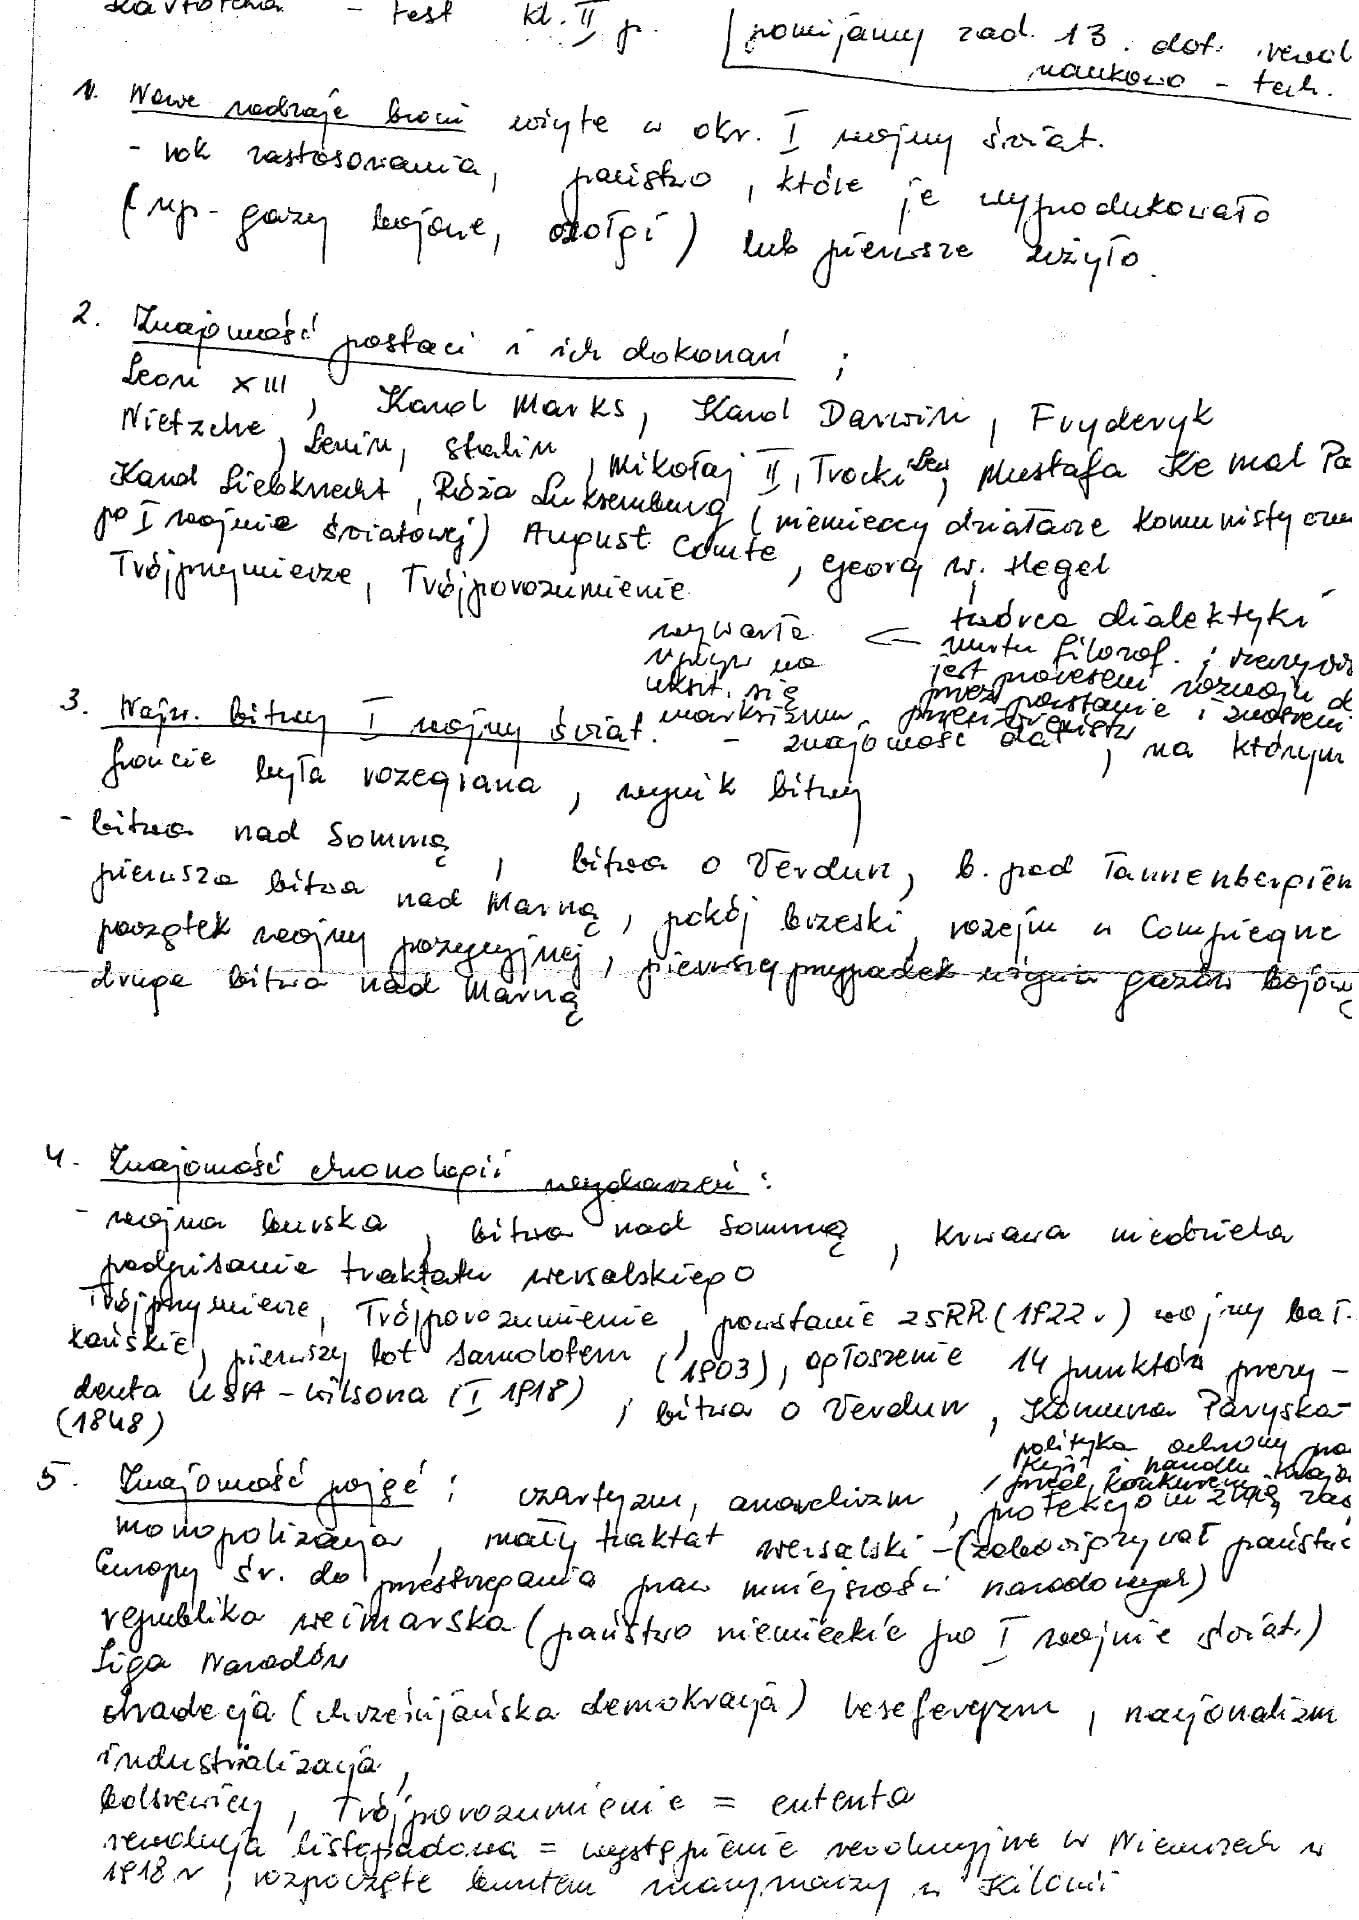 - test kl. II p. pomijamy zad. 13. dot.
naukowo - tech.
1. Nowe rodzaje broni użyte w okr. I wojny świat.
- rok zastosowania, państwo, które je wyprodukowało
(np - gazy bojowe, czołgi) lub pierwsze użyło.
2. Znajomość postaci i ich dokonań ;
Leon XIII, Karol Marks, Karol Darwin, Fryderyk
Nietzche, Lenin, Stalin, Mikołaj II, Trocki Lew, Mustafa Kemal Pa
Karol Liebknecht, Róża Luksemburg (niemieccy działacze komunistyczn
po I wojnie światowej) August Comte, Georg W. Hegel
Trójprzymierze, Trójporozumienie
twórca dialektyki
wywarła <- nurtu filozof. ; rzeczyw
wpływ na jest procesem rozwoju d
ukszt. się przez powstanie i znoszeni
marksizmu przeciwieństw
3. Najw. bitwy I wojny świat. - znajomość dat, na którym
froncie była rozegrana, wynik bitwy
- bitwa nad Sommą, bitwa o Verdun, b. pod Tannenbergiem
pierwsza bitwa nad Marną, pokój brzeski, rozejm w Compiegne
początek wojny pozycyjnej, pierwszy przypadek użycia gazów bojowy
druga bitwa nad Marną
4. Znajomość chronologii wydarzeń :
- wojna burska, bitwa nad Sommą, krwawa niedziela
podpisanie traktatu wersalskiego
Trójprzymierze, Trójporozumienie, powstanie ZSRR (1922 r) wojny bał-
kańskie, pierwszy lot samolotem (1903), ogłoszenie 14 punktów prezy-
denta USA - Wilsona (I 1918), bitwa o Verdun, Komuna Paryska -
(1848)
polityka ochrony
i handlu krajo
przed konkurencją
5. Znajomość pojęć : czartyzm, anarchizm, protekcjonizm
monopolizacja, mały traktat wersalski - (zobowiązywał państwa
Europy Śr. do przestrzegania praw mniejszości narodowych)
republika weimarska (państwo niemieckie po I wojnie świat.)
Liga Narodów
chadecja (chrześcijańska demokracja) leseferyzm, nacjonalizm
industrializacja,
bolszewicy, Trójporozumienie = ententa
rewolucja listopadowa = wystąpienie rewolucyjne w Niemczech w
1918 r, rozpoczęte buntem marynarzy w Kilonii